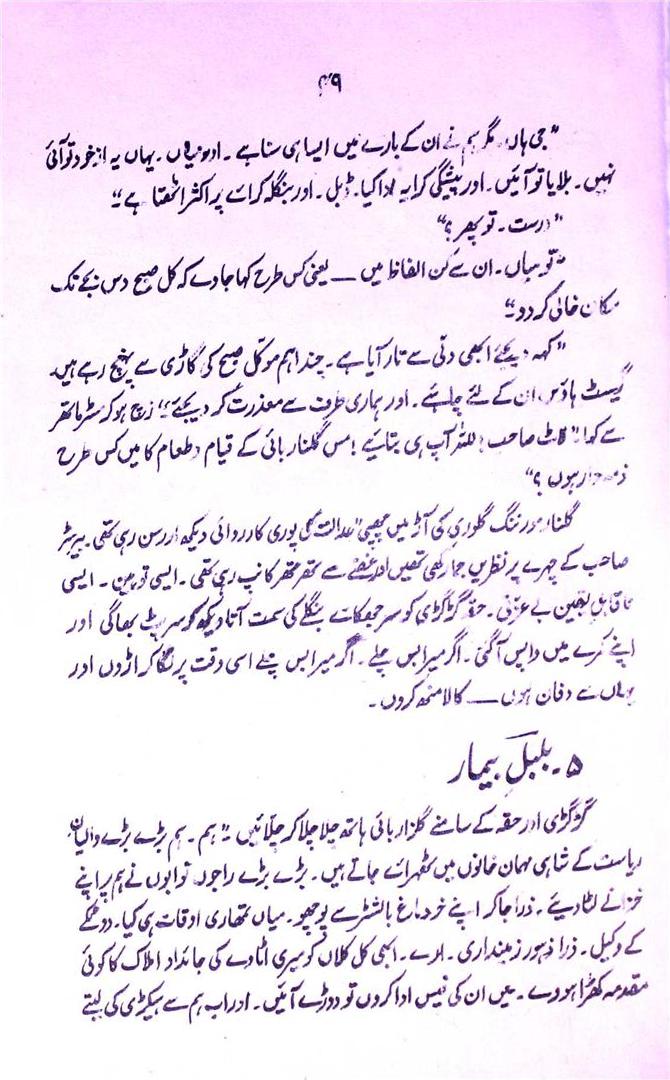 ۴۹
”جی ہاں۔ مگر ہم نے ان کے بارے میں ایسا ہی سنا ہے۔ ادھر یہاں۔ یہاں یہ از خود تو آئی
نہیں۔ بلایا تو آئیں۔ اور پیشگی کرایہ ادا کیا۔ ڈبل۔ اور بنگلہ کرائے پر اکثر اٹھتا ہے“
”درست۔ تو پھر؟“
”تو میاں۔ ان سے کن الفاظ میں — یعنی کس طرح کہا جاوے کہ کل صبح دس بجے تک
مکان خالی کر دو“
”کہہ دیجئے ابھی دلّی سے تار آیا ہے۔ چند اہم موکل صبح کی گاڑی سے پہنچ رہے ہیں۔
گیسٹ ہاؤس ان کے لئے چاہئے۔ اور ہماری طرف سے معذرت کر دیجئے“ زچ ہو کر مسٹر ماتھر
سے کہا ”لاٹ صاحب! للہ آپ ہی بتائیے! مس گلنار بائی کے قیام و طعام کا میں کس طرح
ذمہ دار ہوں؟“
گلنار مورننگ گلوری کی آڑ میں چھپی ”عدالت“ کی پوری کارروائی دیکھ اور سن رہی تھی۔ بیرسٹر
صاحب کے چہرے پر نظریں جما رکھی تھیں اور غصّے سے تھر تھر کانپ رہی تھی۔ ایسی توہین۔ ایسی
ناقابلِ یقین بے عزتی۔ حقہ گڑگڑی کو سر جھکائے بنگلے کی سمت آتا دیکھ کو سرپٹ بھاگی اور
اپنے کمرے میں واپس آ گئی۔ اگر میرا بس چلے۔ اگر میرا بس چلے اسی وقت پر لگا کر اڑوں اور
یہاں سے دفان ہوں — کالا منھ کروں۔
۵۔ بلبلِ بیمار
گڑگڑی اور حقہ کے سامنے گلزار بائی ہاتھ چلا چلا کر چلّائیں ”ہم۔ ہم بڑے بڑے والیانِ
ریاست کے شاہی مہمان خانوں میں ٹھہرائے جاتے ہیں۔ بڑے بڑے راجوں نوابوں نے ہم پر اپنے
خزانے لٹا دیئے۔ ذرا جا کر اپنے خردماغ بالشٹر سے پوچھو۔ میاں تمھاری اوقات ہی کیا۔ دو ٹکے
کے وکیل۔ ذرا ذہور زمینداری۔ ارے۔ ابھی کل کلاں کو میری اٹاوے کی جائداد املاک کا کوئی
مقدمہ کھڑا ہووے۔ میں ان کی فیس ادا کروں تو دوڑے آئیں۔ اور اب ہم سے ہیکڑی کی لیتے